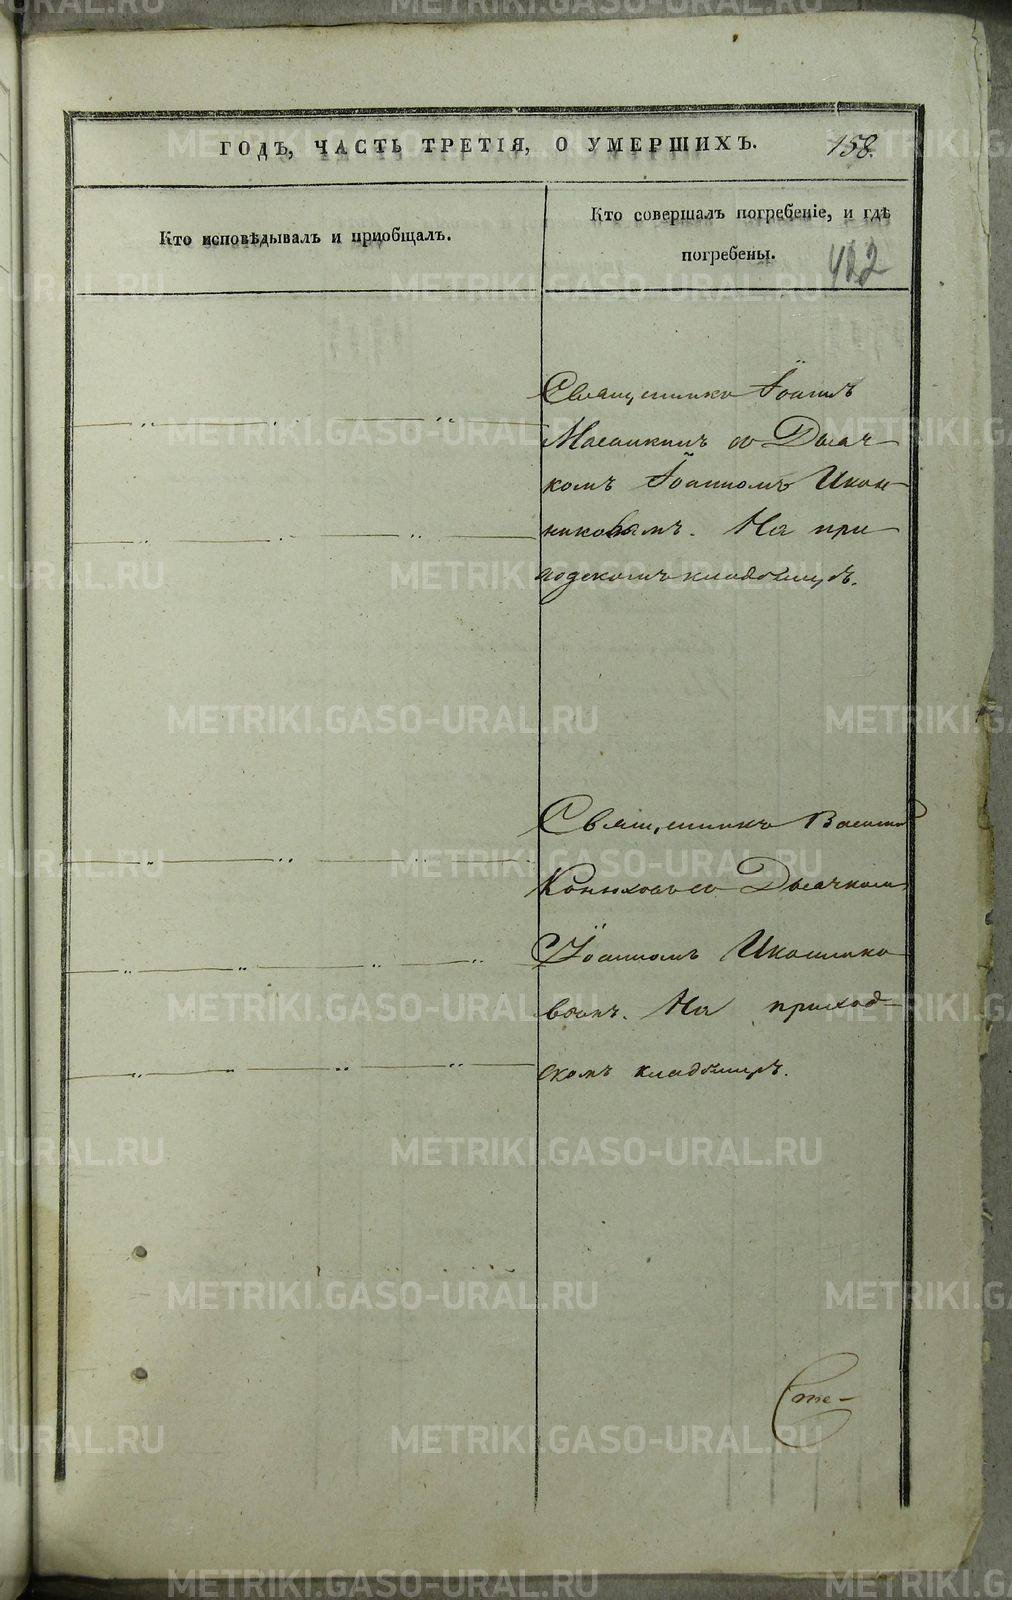 ГОДЪ, ЧАСТЬ ТРЕТІЯ, О УМЕРШИХЪ. 158.
Кто исповѣдывалъ и приобщалъ.
Кто совершалъ погребеніе, и гдѣ
погребены. 422
Священникъ Іоаннъ
со Дьяч-
комъ Іоанномъ Икон-
никовымъ. На при-
ходскомъ кладбищѣ.
Священникъ Василій
Конюховъ со Дьячкомъ
Іоанномъ Иконнико-
вымъ. На приход-
скомъ кладбищѣ.
METRIKI.GASO-URAL.RU